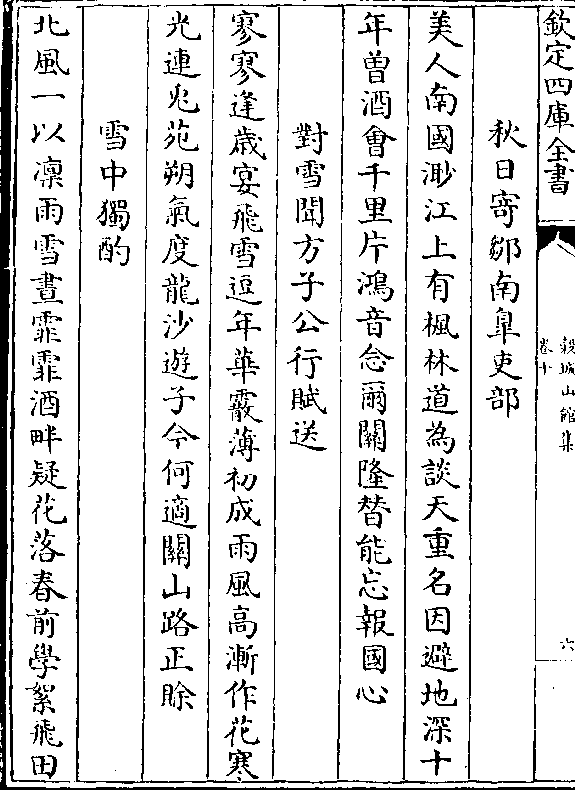 欽定四庫全書
榖城山館集
卷十
六
秋日寄鄒南臯吏部
美人南國渺江上有楓林道為談天重名因避地深十
年曽酒會千里片鴻音念爾關隆替能忘報國心
對雪聞方子公行賦送
寥寥逢歳宴飛雪逗年華霰薄初成雨風高漸作花寒
光連兎苑朔氣度龍沙遊子今何適關山路正賖
雪中獨酌
北風一以凛雨雪晝霏霏酒畔疑花落春前學絮飛田